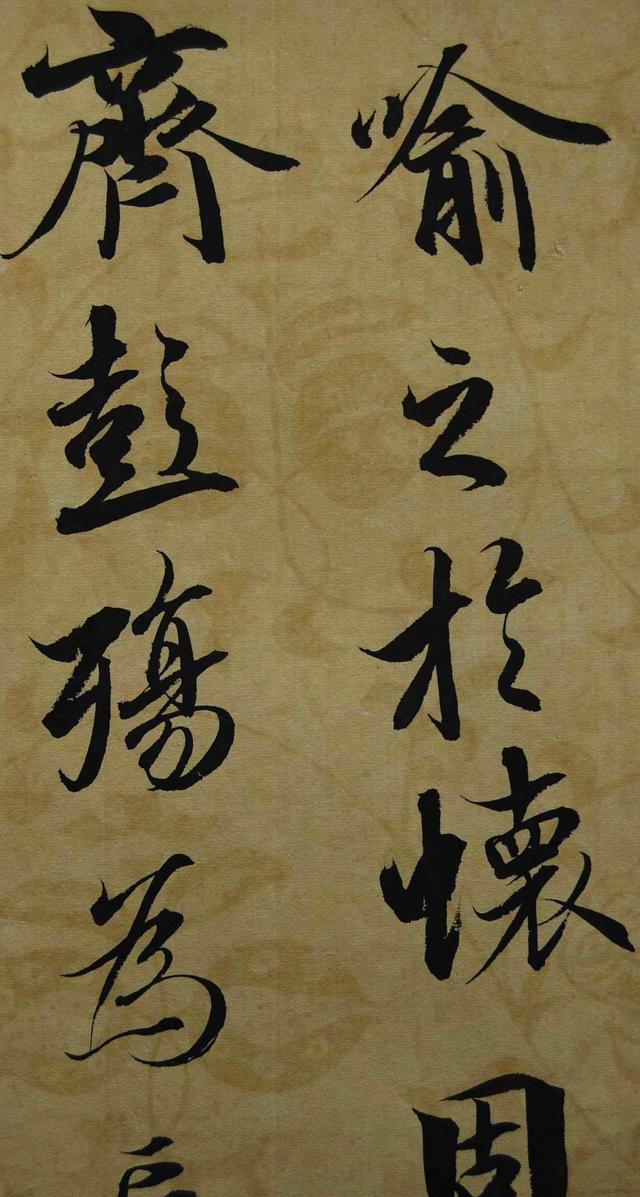 喻之於懷固
齊彭殤為